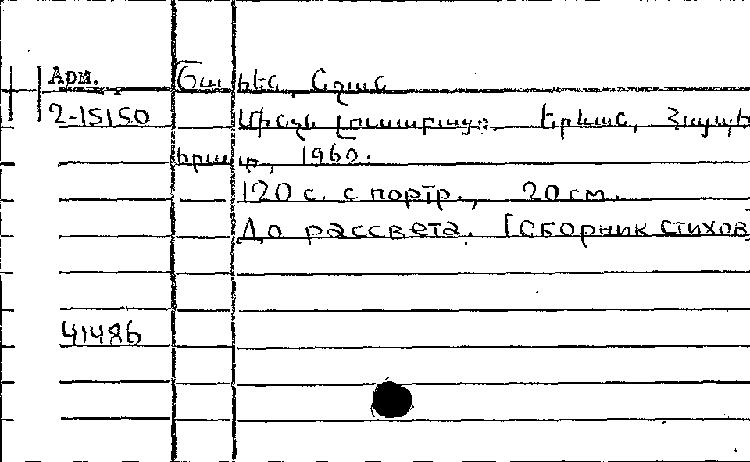 Арм.
2-15150
Մինչև լուսաբաց. Երևան, Հայպետ
հրատ., 1960.
120 с. с портр., 20 см.
До рассвета. [Сборник стихов
41486